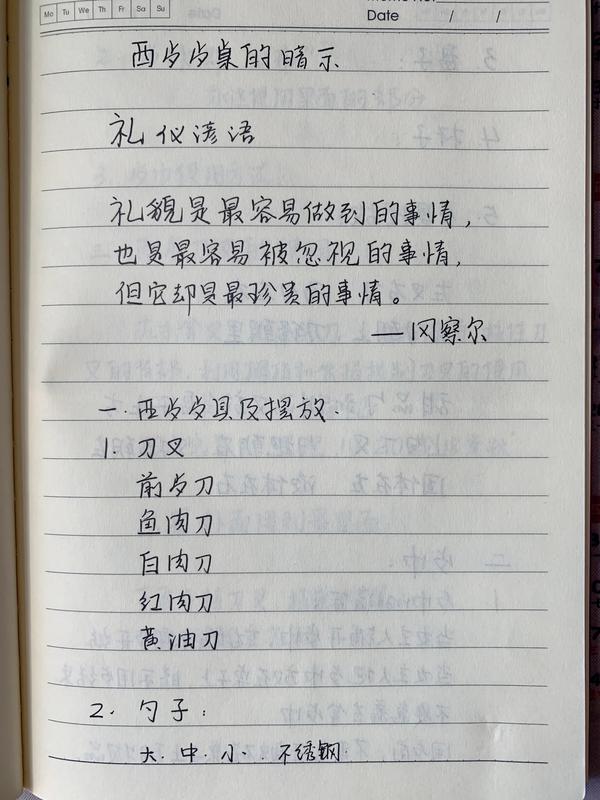 Mo Tu We Th Fr Sa Su
Memo No.
Date / /
西歺歺桌的暗示
礼仪谚语
礼貌是最容易做到的事情，
也是最容易被忽视的事情，
但它却是最珍贵的事情。
——冈察尔
一.西歺歺具及摆放.
1. 刀叉
前歺刀
鱼肉刀
白肉刀
红肉刀
黄油刀
2. 勺子:
大.中.小.不绣钢.